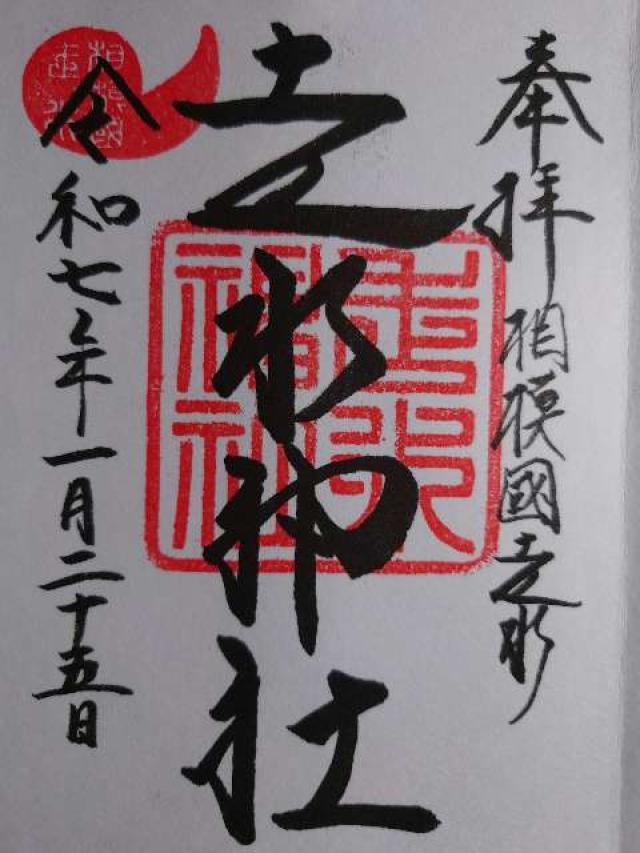 奉拝 相模國走水
走水神社
令和七年一月二十五日
走水
神社
相模國
走水